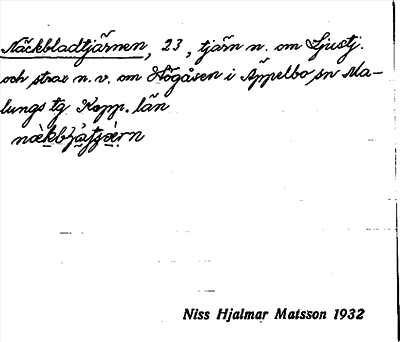 Näckbladtjärnen, 23, tjärn n. om Ljustj.
och strax n.v. om Högåsen i Äppelbo sn Ma-
lungs tg Kopp. län
Niss Hjalmar Matsson 1932